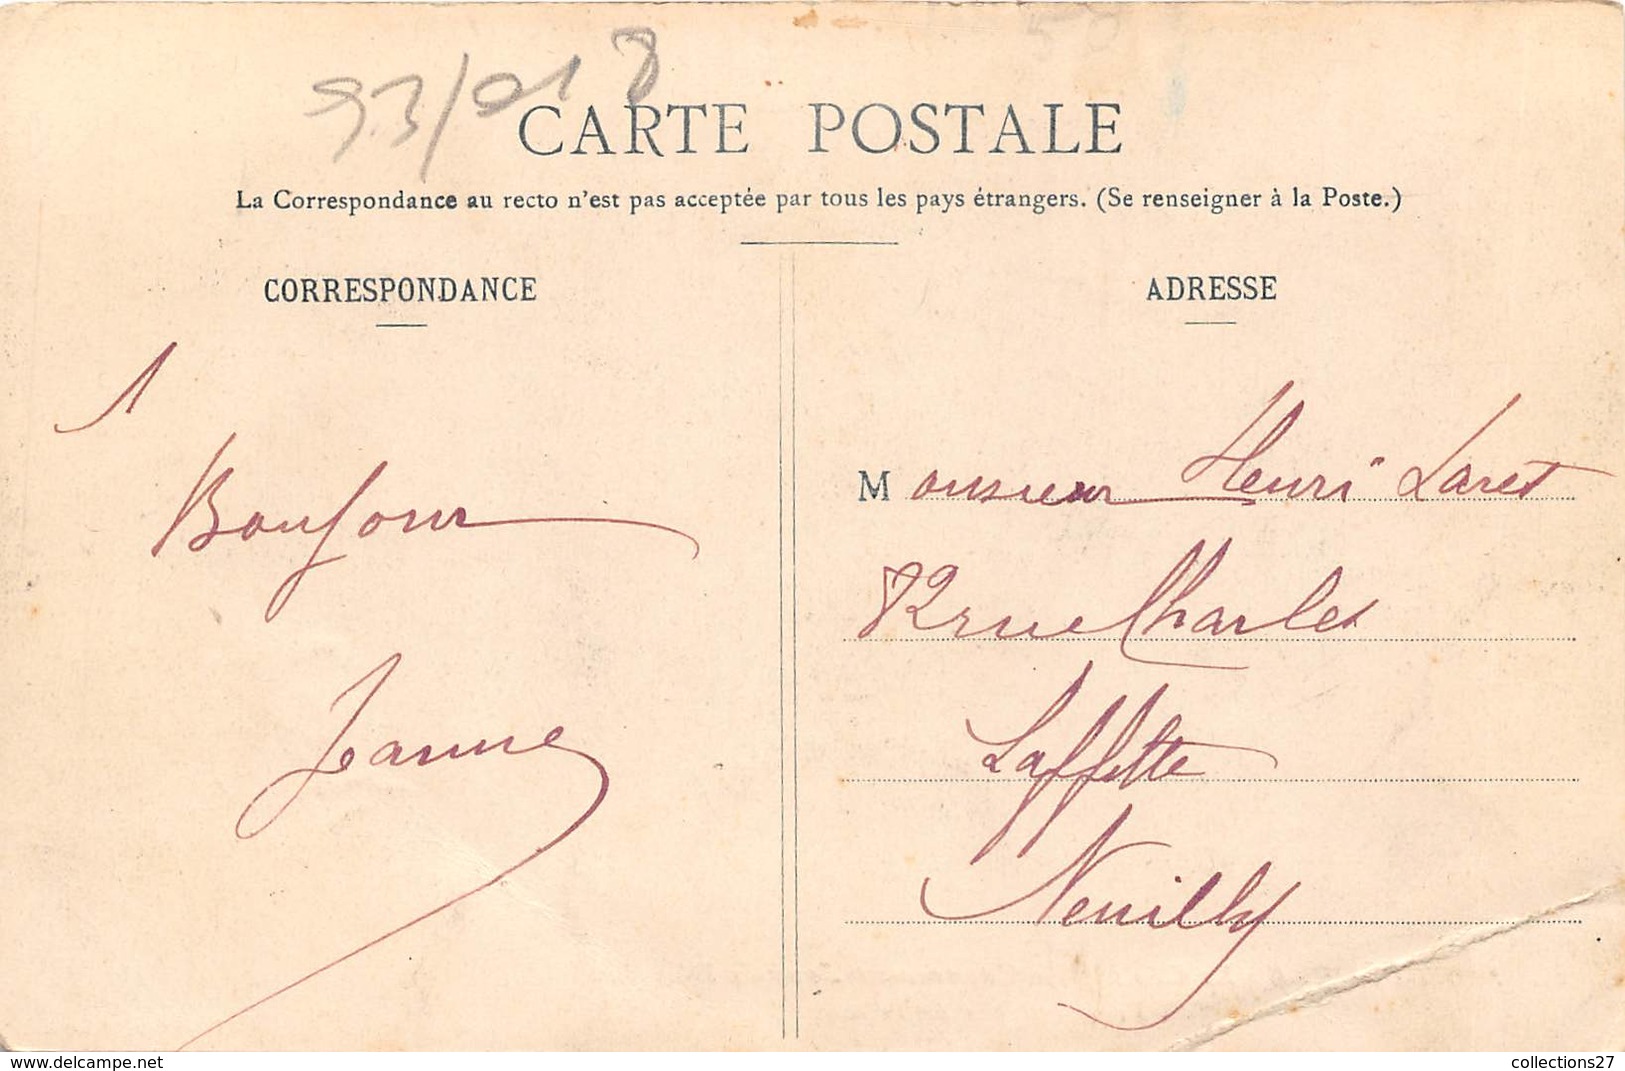 93/018
CARTE POSTALE
La Correspondance au recto n'est pas acceptée par tous les pays étrangers. (Se renseigner à la Poste.)
CORRESPONDANCE
1
Bonjour
Jeanne
ADRESSE
Monsieur Henri Laret
82 rue Charles
Laffitte
Neuilly
www.delcampe.net
collections27